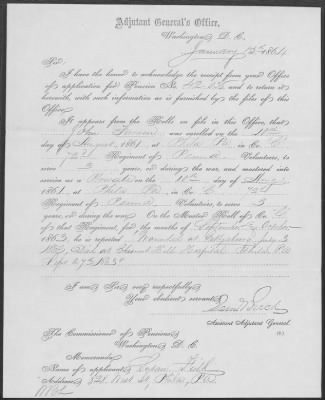 Adjutant General's Office,
Washington, D. C.
January 13th 1864
Sir:
I have the honor to acknowledge the receipt from your Office
of application for Pension No. and to return it
herewith, with such information as is furnished by the files of this
Office.
It appears from the Rolls on file in this Office, that
John was enrolled on the 10th
day of August, 1861, at Phila Pa, in Co. C,
72d Regiment of Penna Volunteers, to
serve 3 years, or during the war, and mustered into
service as a on the 10th day of Aug,
1861, at Phila Pa, in Co. C, 72d
Regiment of Penna Volunteers, to serve 3
years, or during the war. On the Muster Roll of Co. C,
of that Regiment, for the months of September & October
1863, he is reported Wounded at Gettysburg July 3
Died at Hospital Phila Pa
Sept 27th 1863
I am, Sir, very respectfully,
Your obedient servant,
Assistant Adjutant General.
The Commissioner of Pensions,
Washington, D. C.
Memoranda:
Name of applicant,
Address, St, Phila, Pa